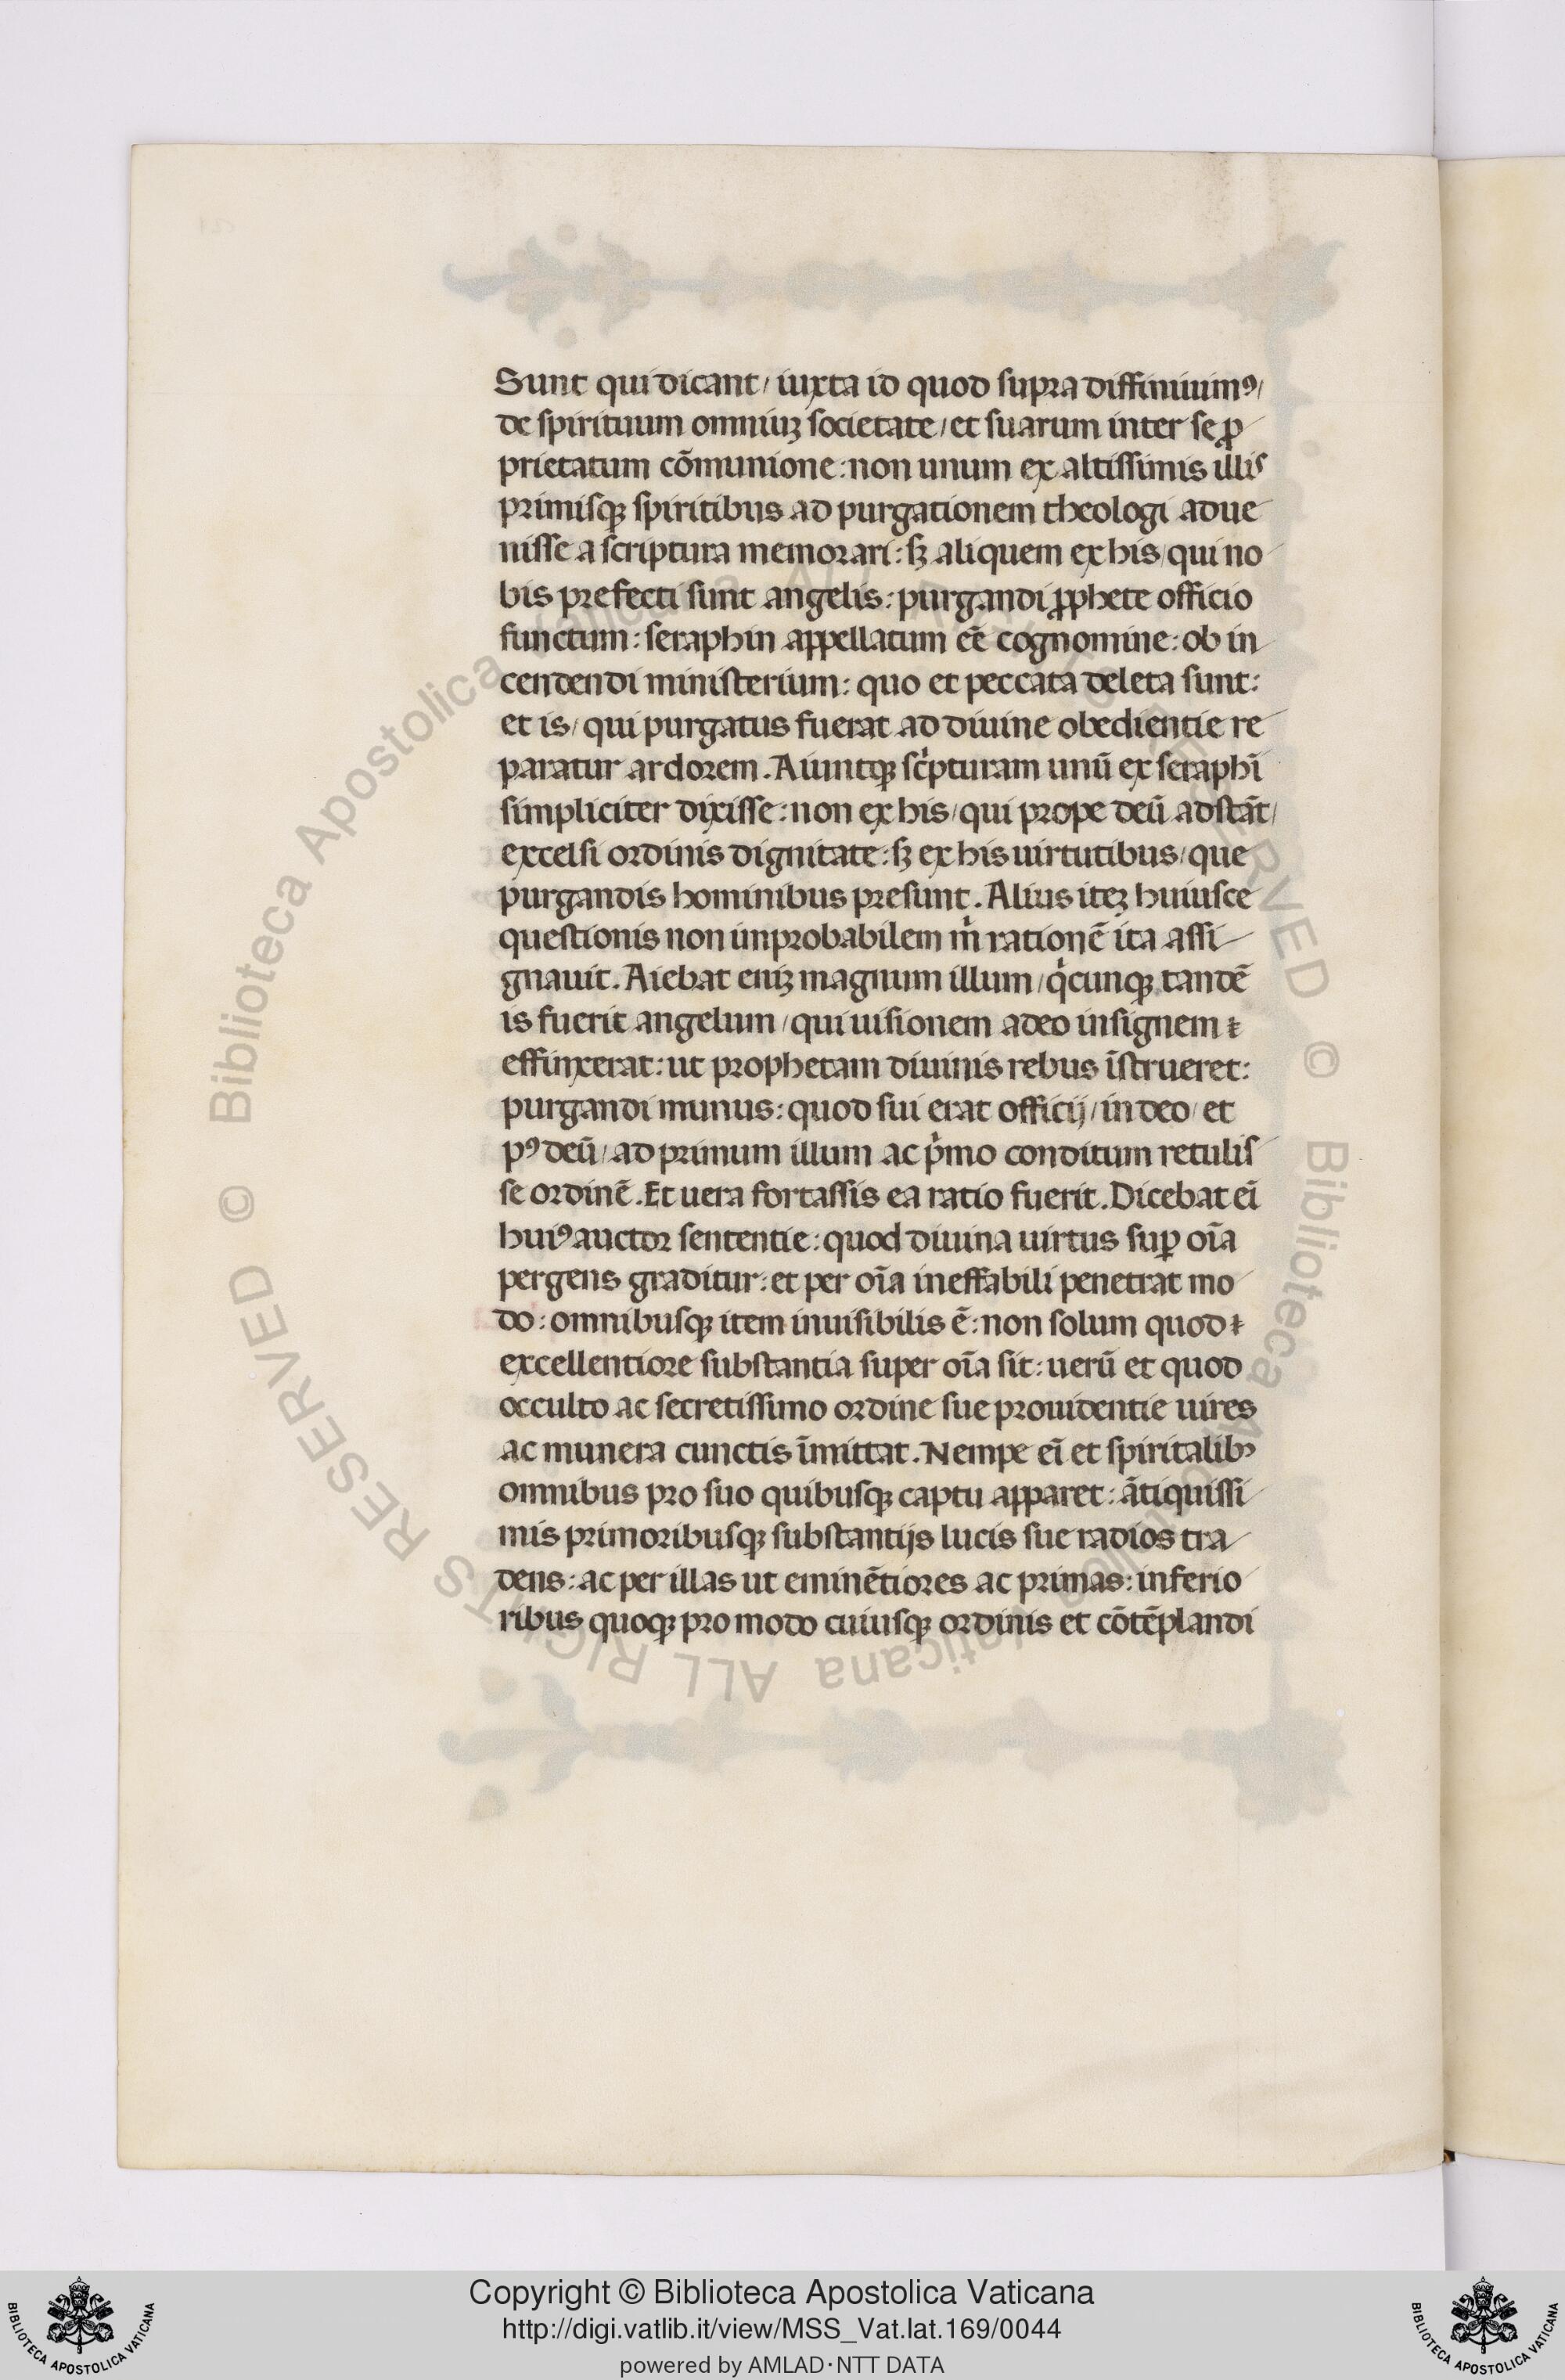 Sunt qui dicant / iuxta id quod supra diffiniuimꝰ /
de spirituum omniuꝫ societate / et suarum inter se ꝓ
prietatum cōmunione : non unum ex altissimis illis
primisqꝫ spiritibus ad purgationem theologi adue
nisse a scriptura memorari : sꝫ aliquem ex his / qui no
bis prefecti sunt angelis : purgandi ꝓphete officio
functum : seraphin appellatum eē cognomine : ob in
cendendi ministerium : quo et peccata deleta sunt :
et is / qui purgatus fuerat ad diuine obedientie re
paratur ardorem . Aiuntqꝫ scͥpturam unū ex seraphī
simpliciter dixisse : non ex his / qui prope deū adstāt /
excelsi ordinis dignitate : sꝫ ex his uirtutibus / que
purgandis hominibus presunt . Alius iteꝫ huiusce
questionis non inprobabilem mͥ rationē ita assi
gnauit . Aiebat eniꝫ magnum illum / qͥcunqꝫ tandē
is fuerit angelum / qui uisionem adeo insignem
effinxerat : ut prophetam diuinis rebus īstrueret :
purgandi munus : quod sui erat officij / in deo / et
pꝰ deū / ad primum illum ac pͥmo conditum retulis
se ordinē . Et uera fortassis ea ratio fuerit . Dicebat eī
huiꝰ auctor sententie : quod diuina uirtus suꝑ oīa
pergens graditur : et per oīa ineffabili penetrat mo
do : omnibusqꝫ item inuisibilis ē : non solum quod
excellentiore substantia super oīa sit : uerū et quod
occulto ac secretissimo ordine sue prouidentie uires
ac munera cunctis īmittat . Nempe eī et spiritalibꝰ
omnibus pro suo quibusqꝫ captu apparet : ātiquissi
mis primoribusqꝫ substantijs lucis sue radios tra
dens : ac per illas ut eminētiores ac primas : inferio
ribus quoqꝫ pro modo cuiusqꝫ ordinis et cōtēplandi
© Biblioteca Apostolica Vaticana ALL RIGHTS RESERVED
© Biblioteca Apostolica Vaticana ALL RIGHTS RESERVED
Copyright © Biblioteca Apostolica Vaticana
http://digi.vatlib.it/view/MSS_Vat.lat.169/0044
powered by AMLAD·NTT DATA
BIBLIOTECA APOSTOLICA VATICANA
BIBLIOTECA APOSTOLICA VATICANA